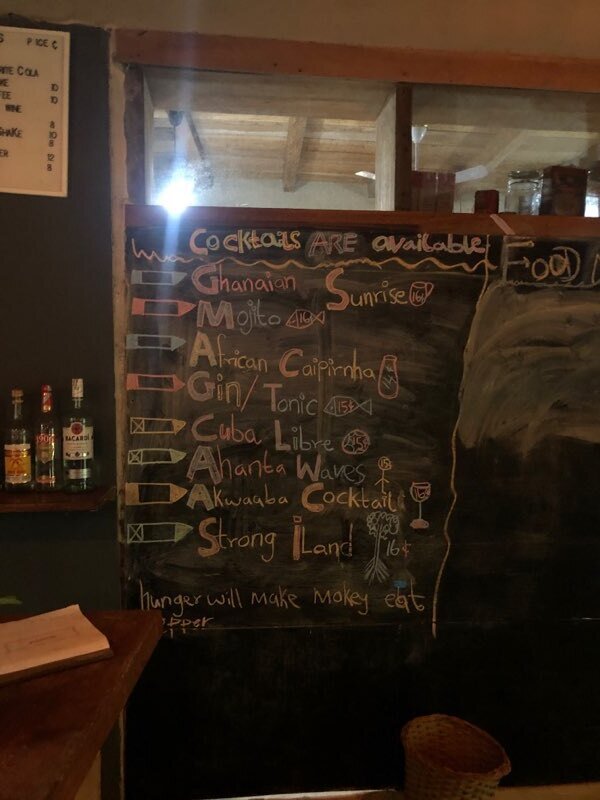 PICE ¢
RITE COLA
KE 10
FEE 10
WINE
8
SHAKE 10
8
ER 12
8
Cocktails ARE available
Ghanaian Sunrise 16¢
Mojito 16¢
African Caipirnha
Gin/Tonic 15¢
Cuba Libre 15¢
Ahanta Waves
Akwaaba Cocktail
Strong iLand 16¢
hunger will make mokey eat
pepper
Food
BACARDI